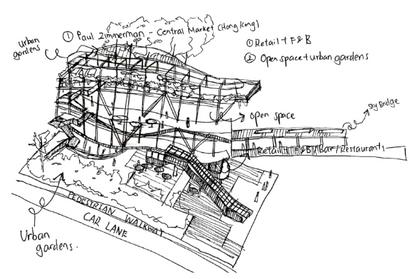 ① Paul Zimmerman - Central Market (Hong Kong)
Urban
gardens
① Retail + F&B
② Open space + urban gardens
Open space
Sky Bridge
Retail + F&B (Bar/Restaurant)
PEDESTRIAN WALKWAY
CAR LANE
Urban
gardens.